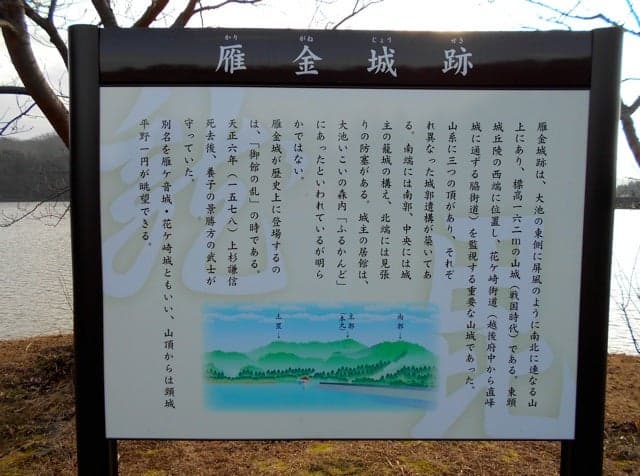 雁金城跡
かり がね じょう せき
雁金城跡は、大池の東側に屏風のように南北に連なる山
上にあり、標高一六二mの山城(戦国時代)である。東頸
城丘陵の西端に位置し、花ケ崎街道(越後府中から直峰
城に通ずる脇街道)を監視する重要な山城であった。
山系に三つの頂があり、それぞ
れ異なった城郭遺構が築いてあ
る。南端には南郭、中央には城
主の籠城の構え、北端には見張
りの防塞がある。城主の居館は、
大池いこいの森内「ふるかんど」
にあったといわれているが明ら
かではない。
雁金城が歴史上に登場するの
は、「御館の乱」の時である。
天正六年(一五七八)上杉謙信
死去後、養子の景勝方の武士が
守っていた。
別名を雁ケ音城・花ケ崎城ともいい、山頂からは頸城
平野一円が眺望できる。
南郭
主郭
(本丸)
土塁